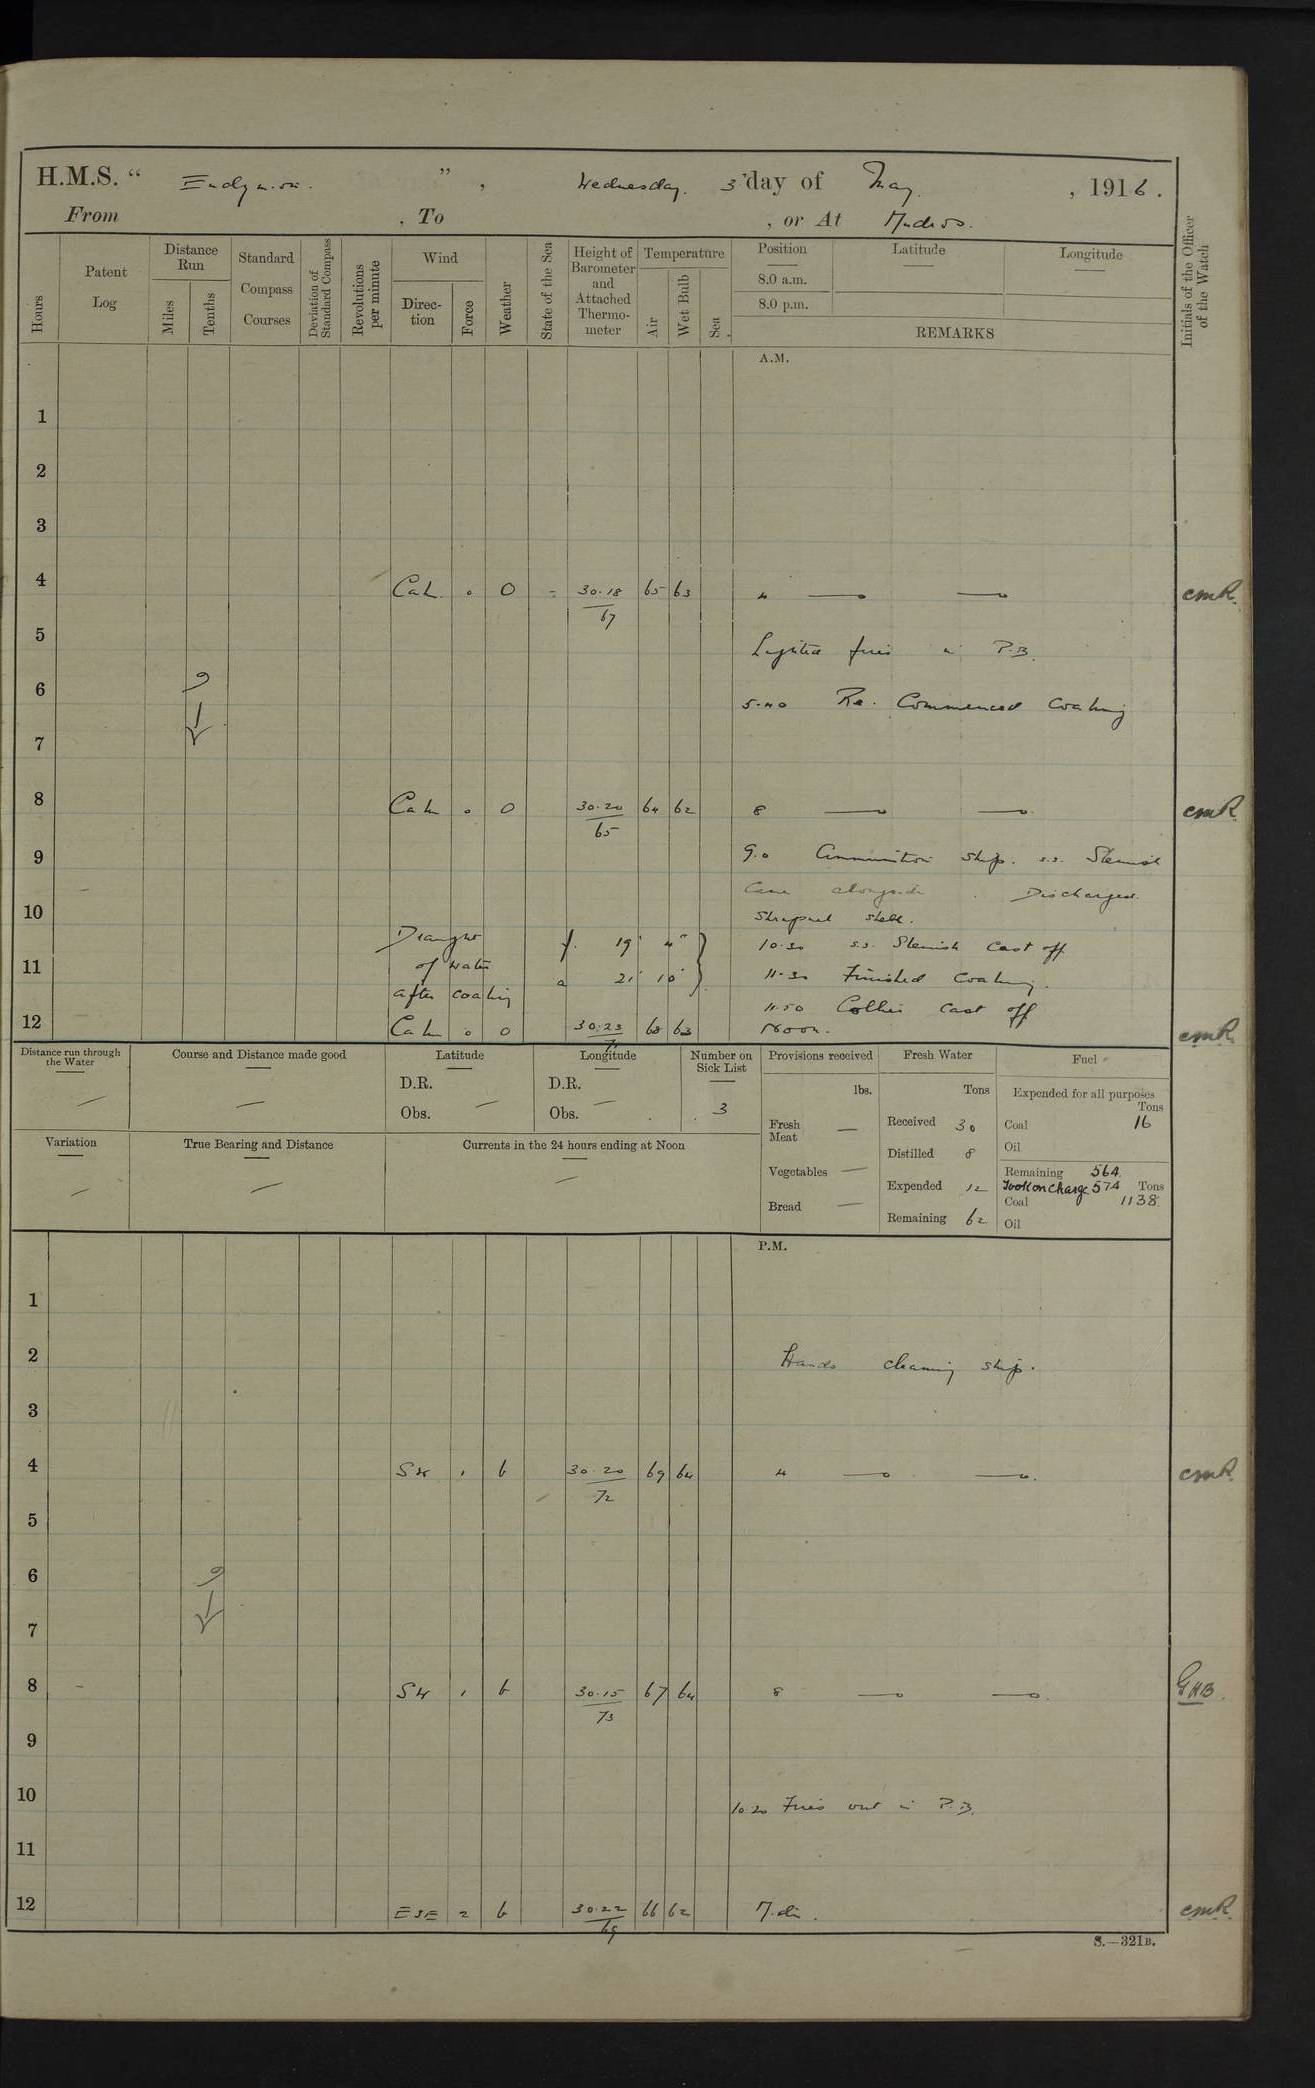 H.M.S. “ Endymion. ” , Wednesday. 3 day of May. , 1916.
From , To , or At Mudros.
Hours
Patent Log
Distance Run
Miles
Tenths
Standard Compass Courses
Deviation of Standard Compass
Revolutions per minute
Wind
Direc-tion
Force
Weather
State of the Sea
Height of Barometer and Attached Thermo-meter
Temperature
Air
Wet Bulb
Sea
Position
8.0 a.m.
8.0 p.m.
Latitude
Longitude
REMARKS
Initials of the Officer of the Watch
A.M.
1
2
3
4 Calm. 0 O - 30.18 65 63 4 cmR.
67
5 Lighted fires in P.B.
6 5.40 Re. Commenced Coaling
7
8 Calm 0 O 30.20 64 62 8 cmR.
65
9 9.0 Ammunition Ship. s.s. Slemish
Came alongside. Discharged
10 Shrapnel shell.
Draught f. 19' 4" 10.30 s.s. Slemish Cast off
11 of water a 21' 10" 11.30 Finished Coaling.
after coaling 11.50 Collier Cast off
12 Calm 0 O 30.23 68 63 Noon. cmR.
Distance run through the Water
Course and Distance made good
Latitude
D.R.
Obs.
Longitude
D.R.
Obs.
Number on Sick List
3
Variation
True Bearing and Distance
Currents in the 24 hours ending at Noon
Provisions received
lbs.
Fresh Meat
Vegetables
Bread
Fresh Water
Tons
Received 30
Distilled 8
Expended 12
Remaining 62
Fuel
Expended for all purposes
Tons
Coal 16
Oil
Remaining 564.
Took on Charge 574 Tons
Coal 1138.
Oil
P.M.
1
2 Hands cleaning ship.
3
4 SW 1 b 30.20 69 64 4 cmR.
72
5
6
7
8 SW 1 b 30.15 67 64 8 GHB.
73
9
10 10.20 Fires out in P.B.
11
12 ESE 2 b 30.22 66 62 M.dt. cmR.
69
S.—321B.